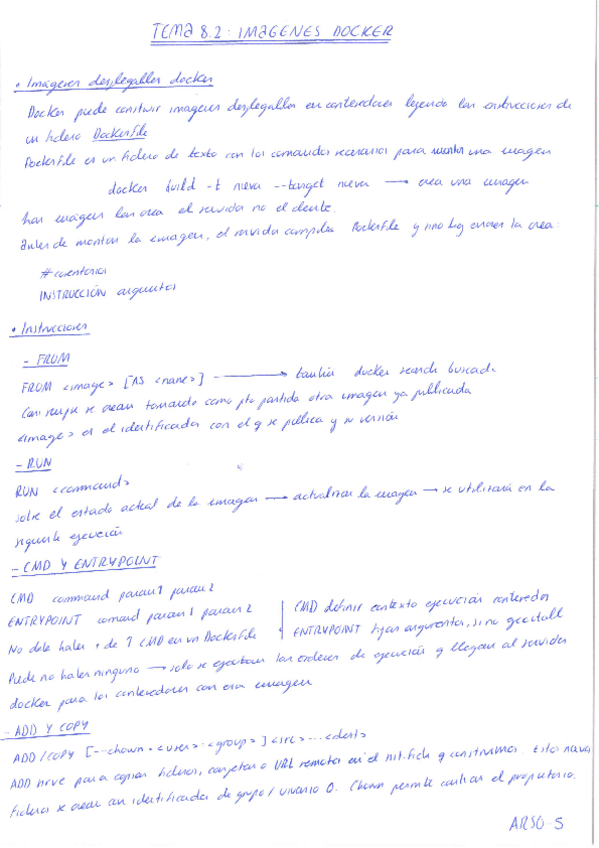 TEMA 8.2: IMAGENES DOCKER
• Imágenes desplegables docker
Docker puede construir imagenes desplegables en contenedores leyendo las instrucciones de
un fichero Dockerfile
Dockerfile es un fichero de texto con los comandos necesarios para montar una imagen
docker build -t nueva --target nueva → crea una imagen
las crea el servidor no el cliente.
Antes de montar la imagen, el servidor compila Dockerfile y si no hay errores la crea:
# comentarios
INSTRUCCIÓN argumentos
• Instrucciones
- FROM
FROM <image> [AS <name>] → también docker search buscada
Casi siempre se crean tomando como pto partida otra imagen ya publicada
<image> es el identificador con el q se publica y su versión
- RUN
RUN <command>
sobre el estado actual de la imagen → actualizar la imagen → se utilizará en la
siguiente ejecución
- CMD Y ENTRYPOINT
CMD command param1 param2
ENTRYPOINT comand param1 param2
CMD definir contexto ejecución contenedor
No debe haber + de 1 CMD en un Dockerfile
ENTRYPOINT fijan argumentos, si no
Puede no haber ninguno → solo se ejecutan las ordenes de ejecución q llegan al servidor
docker para los contenedores con esa imagen
- ADD Y COPY
ADD/COPY [--chown=<user>:<group>] <src>...<dest>
ADD sirve para copiar ficheros, carpetas o URL remotas en el q construimos. Estos nuevos
ficheros se crean con identificador de grupo/usuario 0. Chown permite cambiar el propietario.
ARSO-5